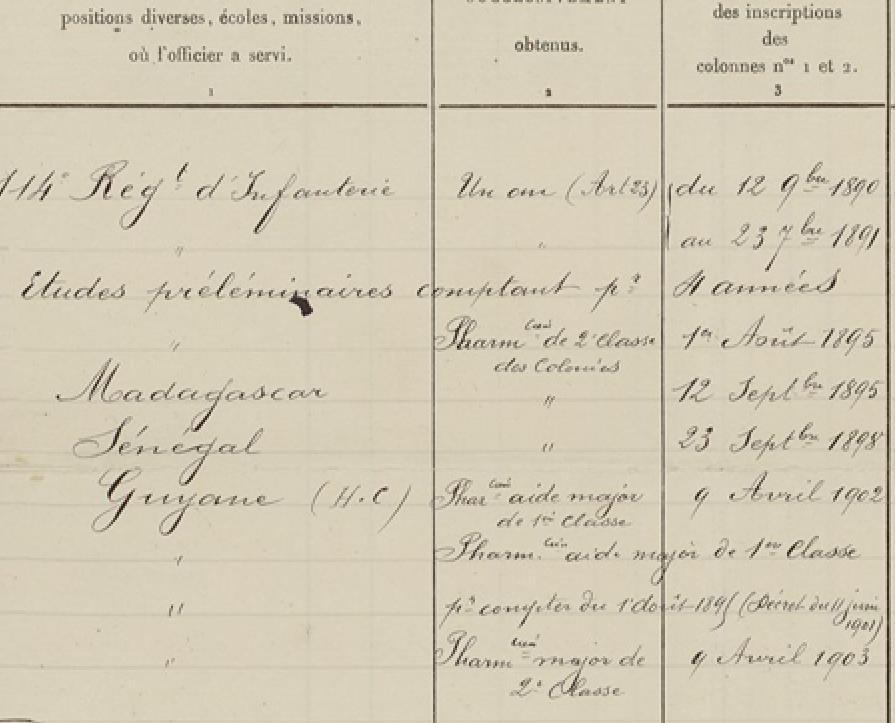 positions diverses, écoles, missions,
où l'officier a servi.
obtenus.
des inscriptions
des
colonnes nos 1 et 2.
1
2
3
114e Régt d'Infanterie Un an (Art 23) du 12 9bre 1890
" " au 23 7bre 1891
Etudes préléminaires comptant pr 4 années
" Pharmcien de 2e Classe 1er Août 1895
des Colonies
Madagascar " 12 Septbre 1895
Sénégal " 23 Septbre 1898
Guyane (H.C) Pharcien aide major 9 Avril 1902
de 1ère Classe
" Pharm.cien aide major de 1ère Classe
" pr compter du 1er août 1895 (Décret du 11 juin
1901)
" Pharmcien major de 9 Avril 1903
2e Classe